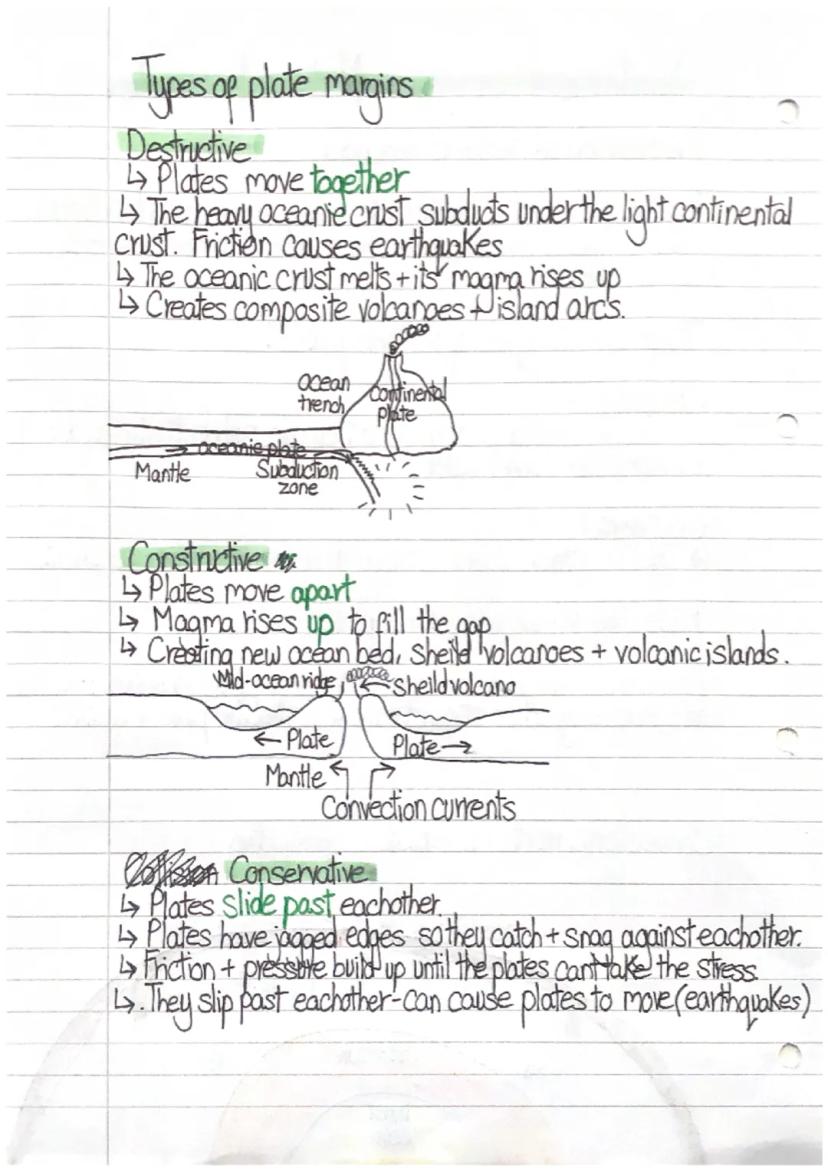 Types of plate margins
Destructive
↳ Plates move together
↳ The heavy oceanic crust subducts under the light continental
crust. Friction causes earthquakes
↳ The oceanic crust melts + its magma rises up
↳ Creates composite volcanoes + island arcs.
ocean
trench
continental
plate
→ oceanic plate
Mantle
Subduction
zone
Constructive
↳ Plates move apart
↳ Magma rises up to fill the gap
↳ Creating new ocean bed, sheild volcanoes + volcanic islands.
Mid-ocean ridge
← Sheild volcano
← Plate
Plate →
Mantle
Convection currents
Collision Conservative
↳ Plates slide past eachother.
↳ Plates have jagged edges so they catch + snag against eachother.
↳ Friction + pressure build up until the plates cant take the stress
↳. They slip past eachother - can cause plates to move (earthquakes)